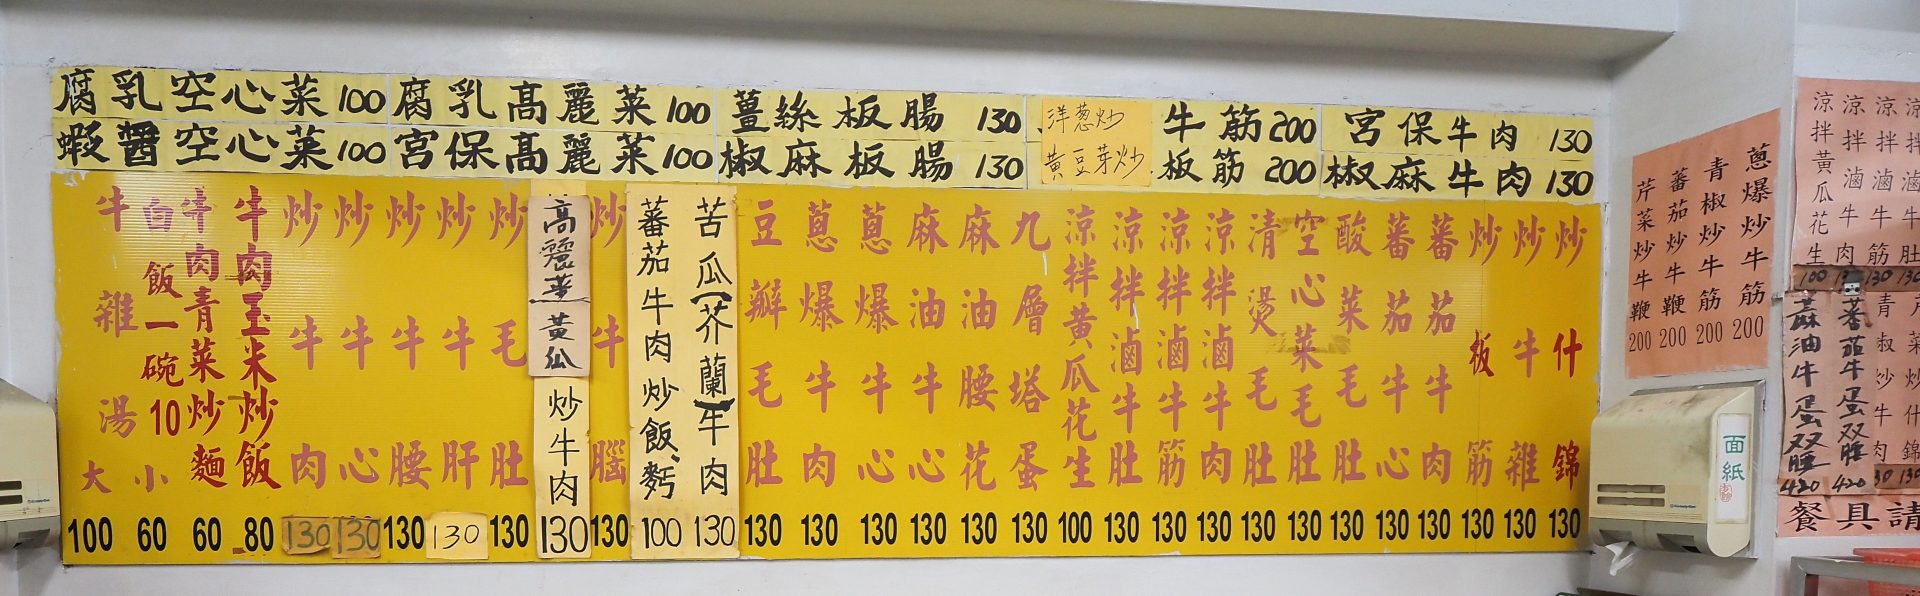 腐乳空心菜100
腐乳髙麗菜100
薑絲板腸 130
洋葱炒
牛筋200
宮保牛肉 130
蝦醬空心菜100
宮保髙麗菜100
椒麻板腸 130
黃豆芽炒
板筋200
椒麻牛肉130
牛雜湯 大 小
100 60
白飯一碗10
牛肉青菜炒麵 60
牛肉玉米炒飯 80
炒牛肉 130
炒牛心 130
炒牛腰 130
炒牛肝 130
炒毛肚 130
高麗菜、黃瓜炒牛肉 130
炒牛腦 130
蕃茄牛肉炒飯、麪 100
苦瓜(芥蘭)牛肉 130
豆瓣毛肚 130
蔥爆牛肉 130
蔥爆牛心 130
麻油牛心 130
麻油腰花 130
九層塔蛋 130
涼拌黃瓜花生 100
涼拌滷牛肚 130
涼拌滷牛筋 130
涼拌滷牛肉 130
清燙毛肚 130
空心菜毛肚 130
酸菜毛肚 130
蕃茄牛心 130
蕃茄牛肉 130
炒板筋 130
炒牛雜 130
炒什錦 130
芹菜炒牛鞭 200
蕃茄炒牛鞭 200
青椒炒牛筋 200
蔥爆炒牛筋 200
面紙
涼拌黃瓜花生 100
涼拌滷牛肉
涼拌滷牛筋 130
涼拌滷牛肚 130
麻油牛蛋双腰 420
蕃茄牛蛋双腰 420
青椒炒牛肉
餐具請